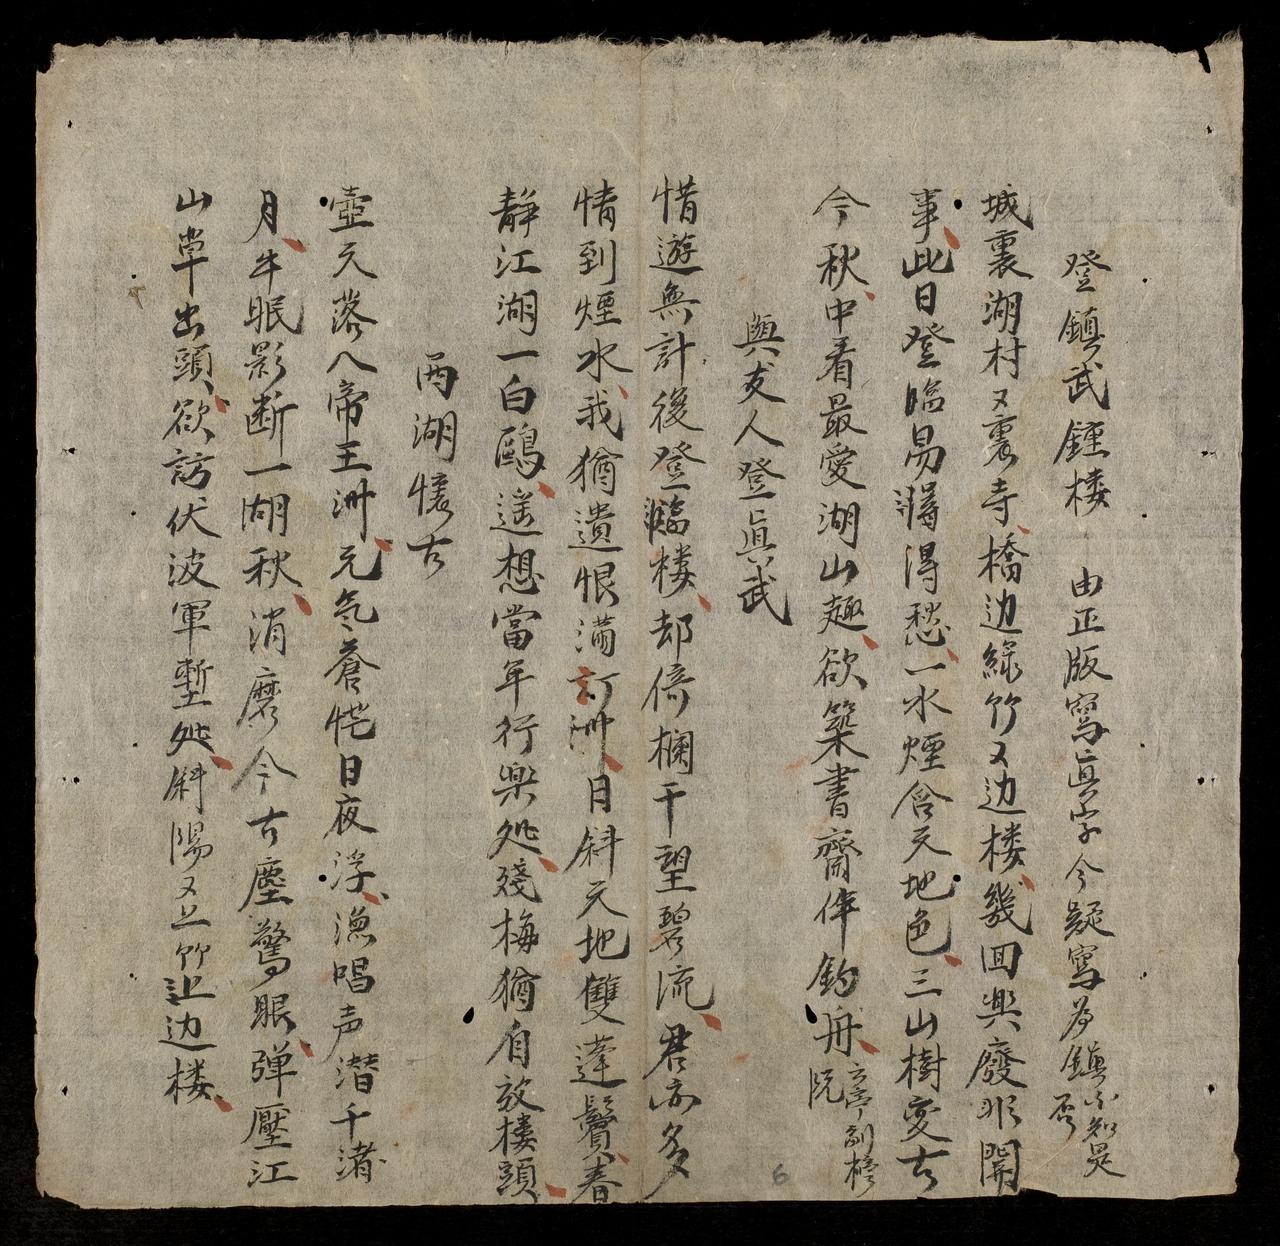 登鎮武鍾楼　由正版寫眞字今疑寫為鎮不知是否
城裏湖村又裏寺橋边綠竹又边楼幾回興廢非閑
事此日登臨易淂愁一水煙含天地色三山樹变古
今秋中看最愛湖山趣欲築書齋伴釣舟
與友人登眞武
惜遊無計後登臨楼却倚欄干望碧流君亦多
情到煙水我猶遺恨滿汀洲日斜天地雙蓬鬢春
静江湖一白鷗遥想當年行楽処殘梅猶自放楼頭
西湖懷古
壺天落八帝王洲元气蒼茫日夜浮漁唱声潜千渚
月牛眠影断一湖秋消磨今古塵驚眼弾壓江
山草出頭欲訪伏波軍塹処斜陽又立竹边楼
6